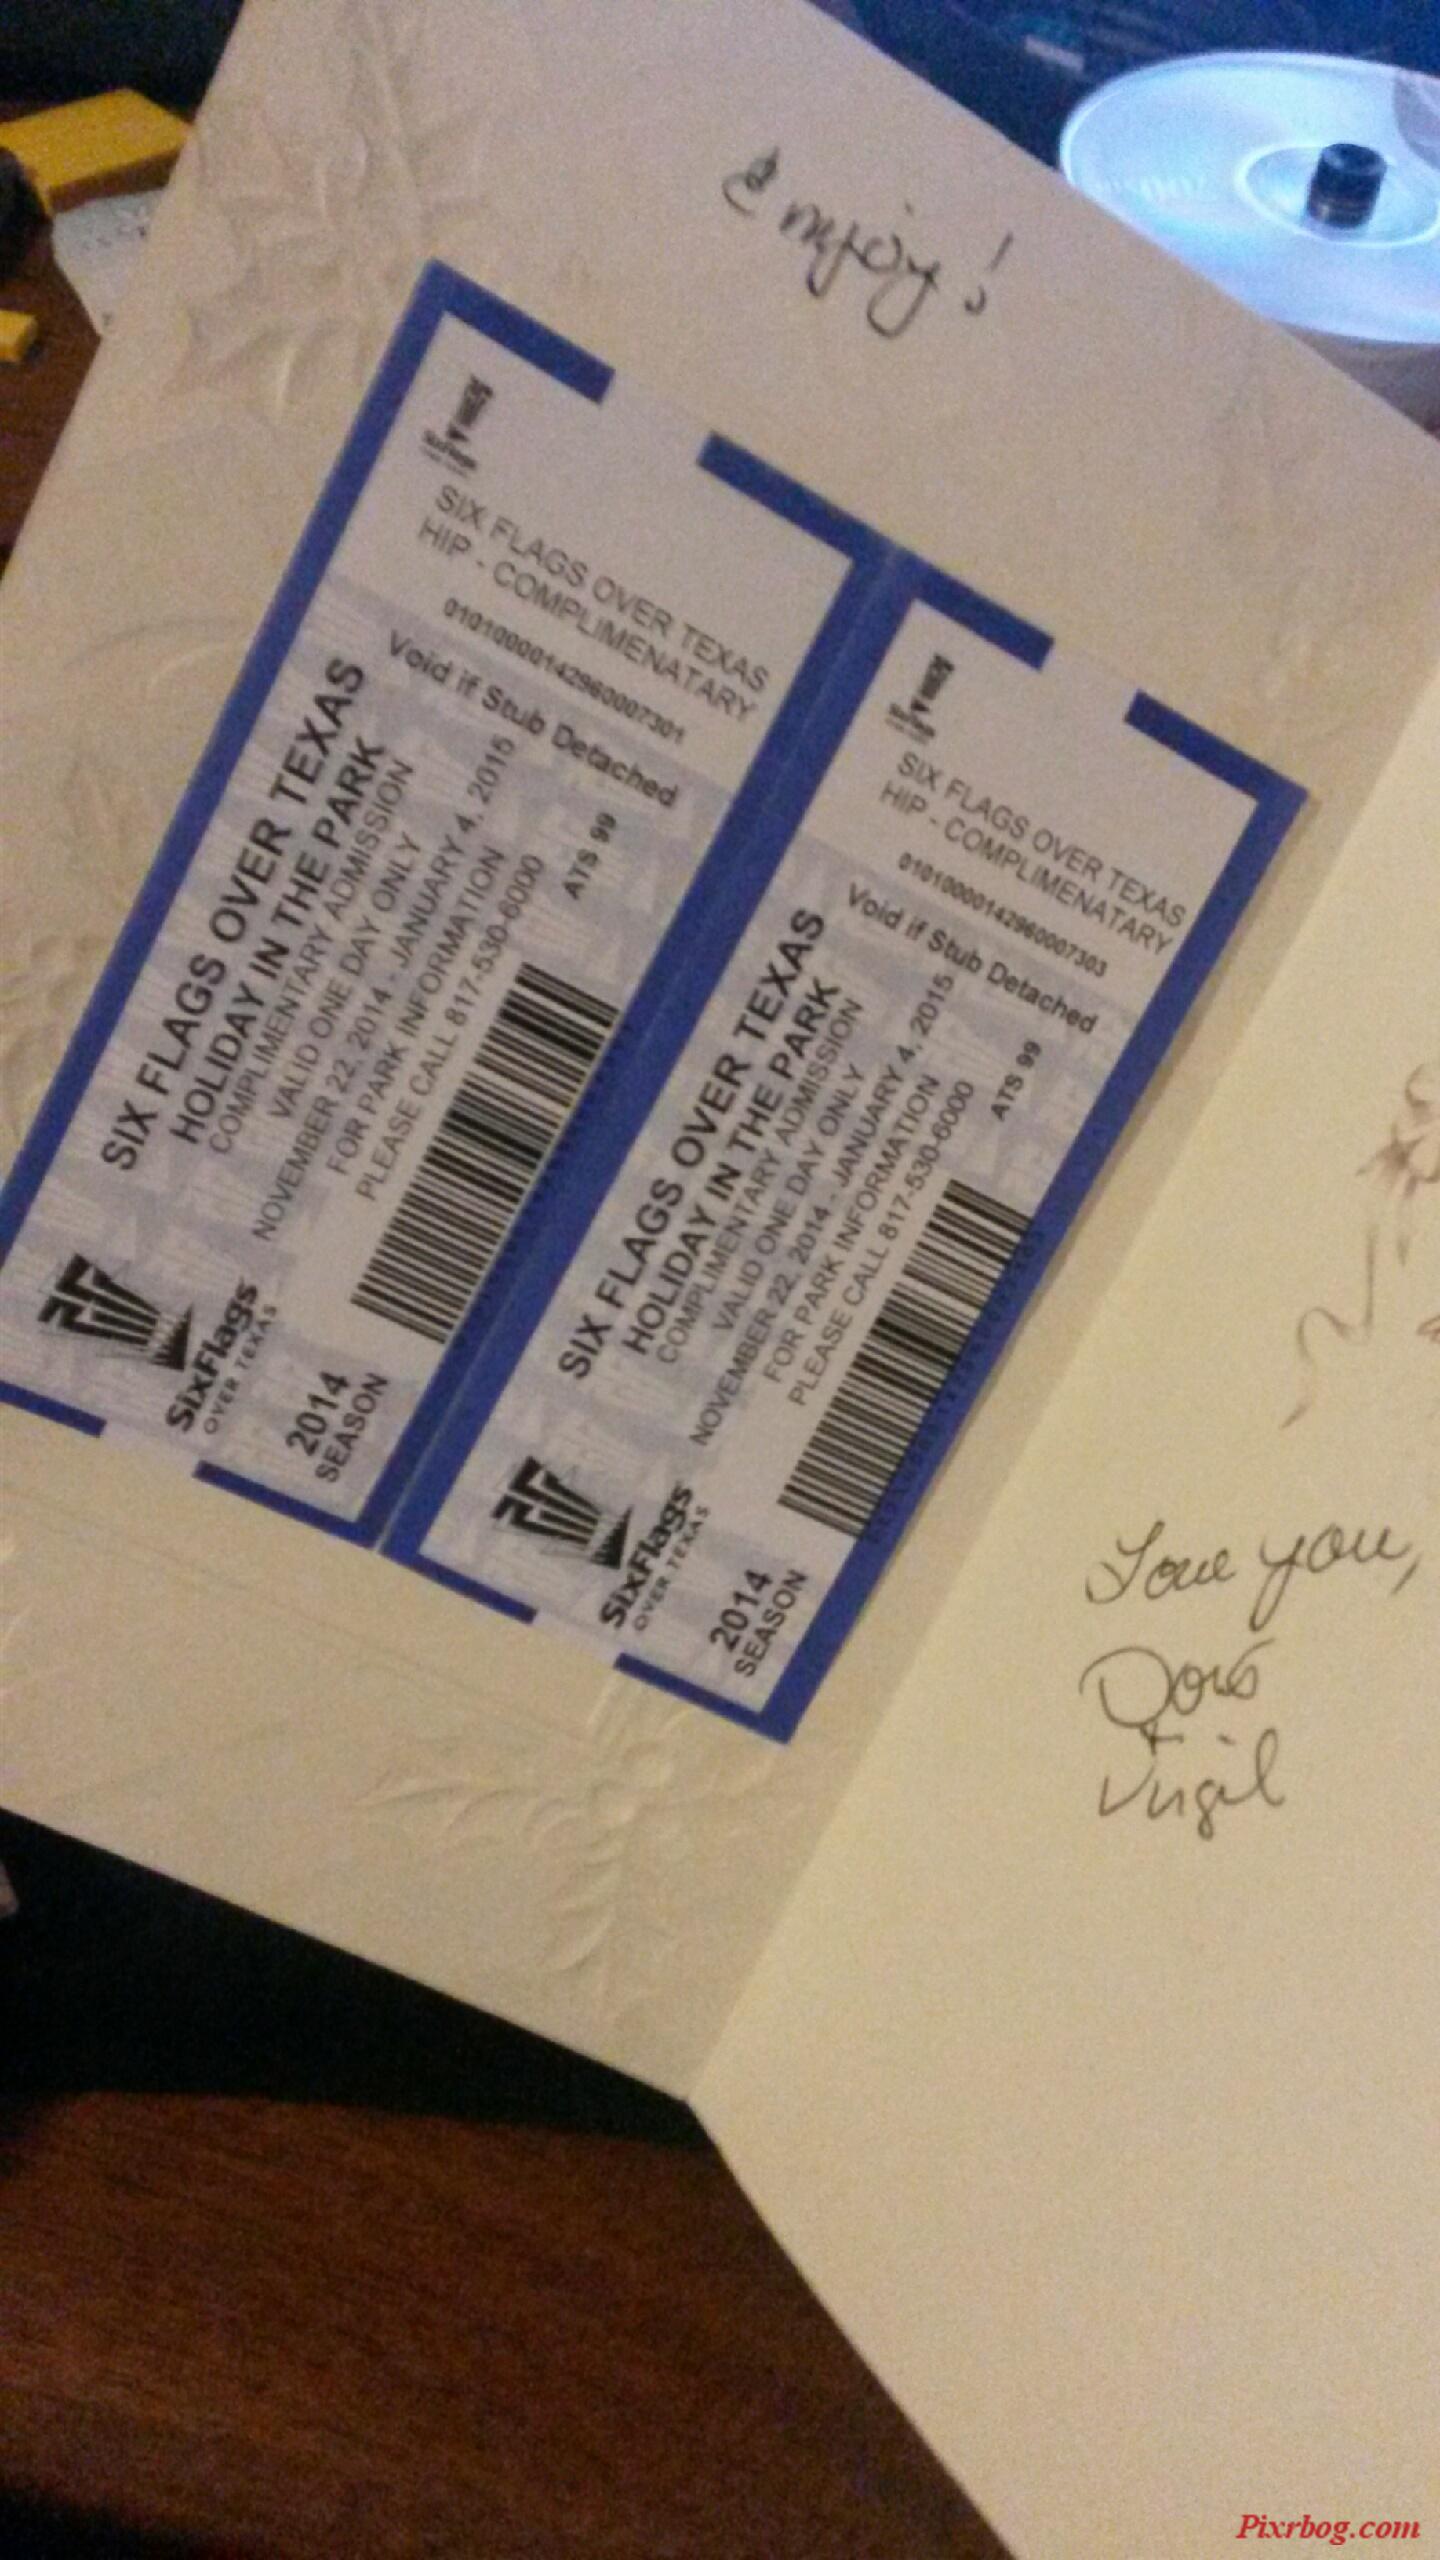 enjoy!
SIX FLAGS OVER TEXAS
HIP - COMPLIMENATARY
01010000142960007301
Void if Stub Detached
SIX FLAGS OVER TEXAS
HOLIDAY IN THE PARK
COMPLIMENTARY ADMISSION
VALID ONE DAY ONLY
NOVEMBER 22, 2014 - JANUARY 4, 2015
FOR PARK INFORMATION
PLEASE CALL 817-530-6000
ATS 99
SixFlags
OVER TEXAS
2014
SEASON
SIX FLAGS OVER TEXAS
HIP - COMPLIMENATARY
01010000142960007303
Void if Stub Detached
SIX FLAGS OVER TEXAS
HOLIDAY IN THE PARK
COMPLIMENTARY ADMISSION
VALID ONE DAY ONLY
NOVEMBER 22, 2014 - JANUARY 4, 2015
FOR PARK INFORMATION
PLEASE CALL 817-530-6000
ATS 99
SixFlags
OVER TEXAS
2014
SEASON
Love you,
Doris
+
Virgil
Pixrbog.com